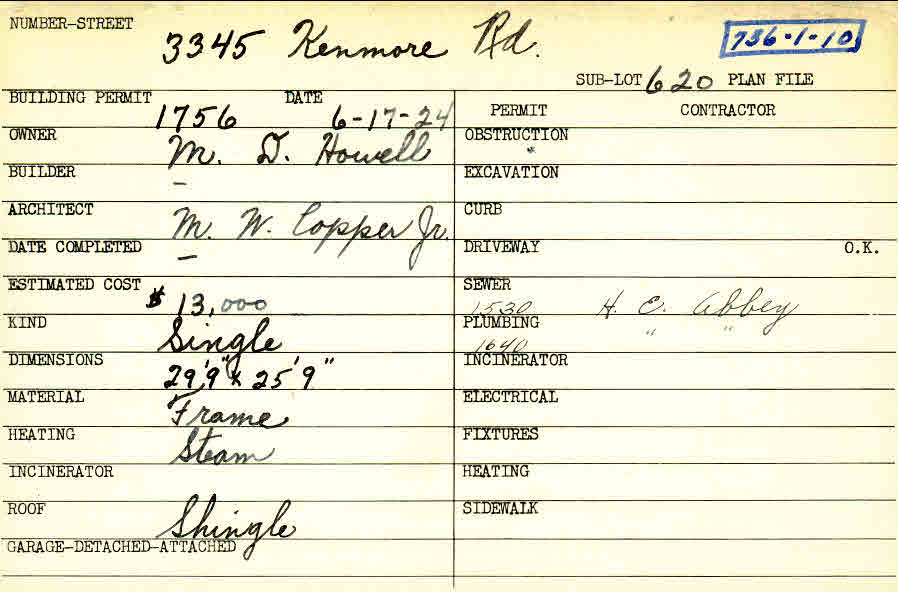 NUMBER-STREET 3345 Kenmore Rd. 736-1-10
SUB-LOT 620 PLAN FILE
BUILDING PERMIT 1756 DATE 6-17-24
OWNER M. D. Howell
BUILDER -
ARCHITECT M. W. Copper Jr.
DATE COMPLETED -
ESTIMATED COST $13,000
KIND Single
DIMENSIONS 29'9" x 25'9"
MATERIAL Frame
HEATING Steam
INCINERATOR
ROOF Shingle
GARAGE-DETACHED-ATTACHED
PERMIT CONTRACTOR
OBSTRUCTION
EXCAVATION
CURB
DRIVEWAY O.K.
SEWER 1530 H. C. Abbey
PLUMBING 1640 " "
INCINERATOR
ELECTRICAL
FIXTURES
HEATING
SIDEWALK